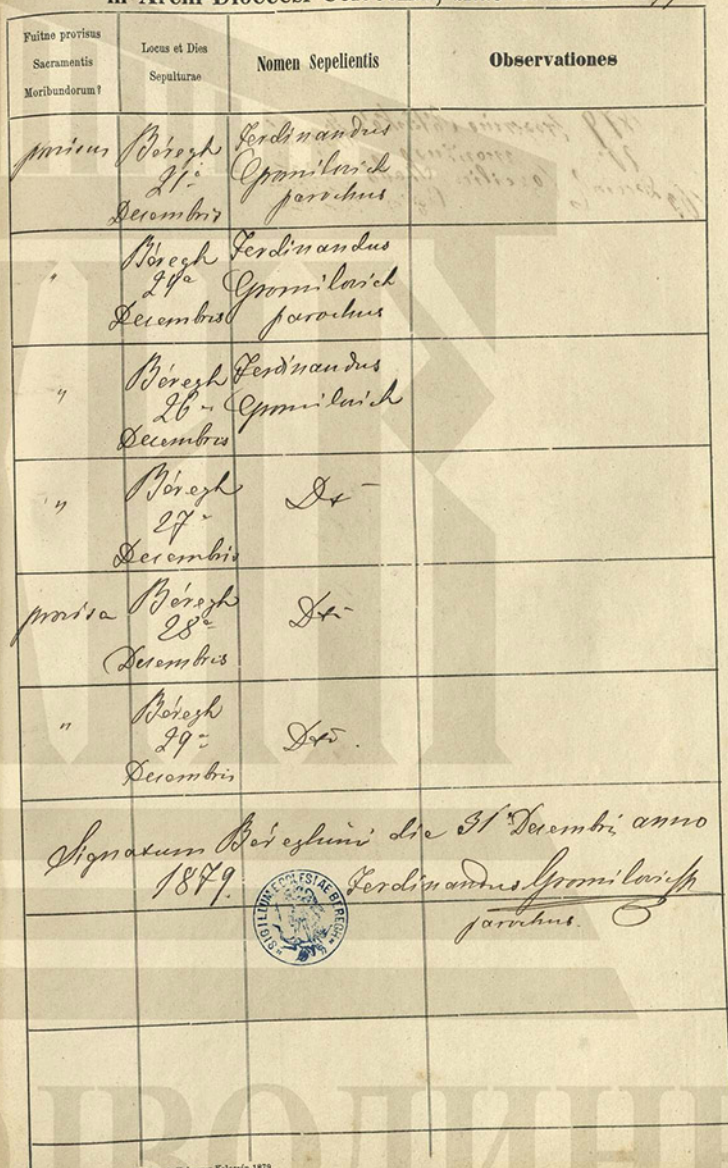 Fuitne provisus
Sacramentis
Moribundorum?
Locus et Dies
Sepulturae
Nomen Sepelientis
Observationes
provisus
Béregh
21a
Decembris
Ferdinandus
Gromilovich
parochus
"
Béregh
24a
Decembris
Ferdinandus
Gromilovich
parochus
"
Béregh
26a
Decembris
Ferdinandus
Gromilovich
"
Béregh
27a
Decembris
"
provisa
Béregh
28a
Decembris
"
Béregh
29a
Decembris
Signatum Béreghini die 31a Decembris anno
1879.
Ferdinandus Gromilovich
parochus.
SIGILLUM ECCLESIAE BEREGH
1879